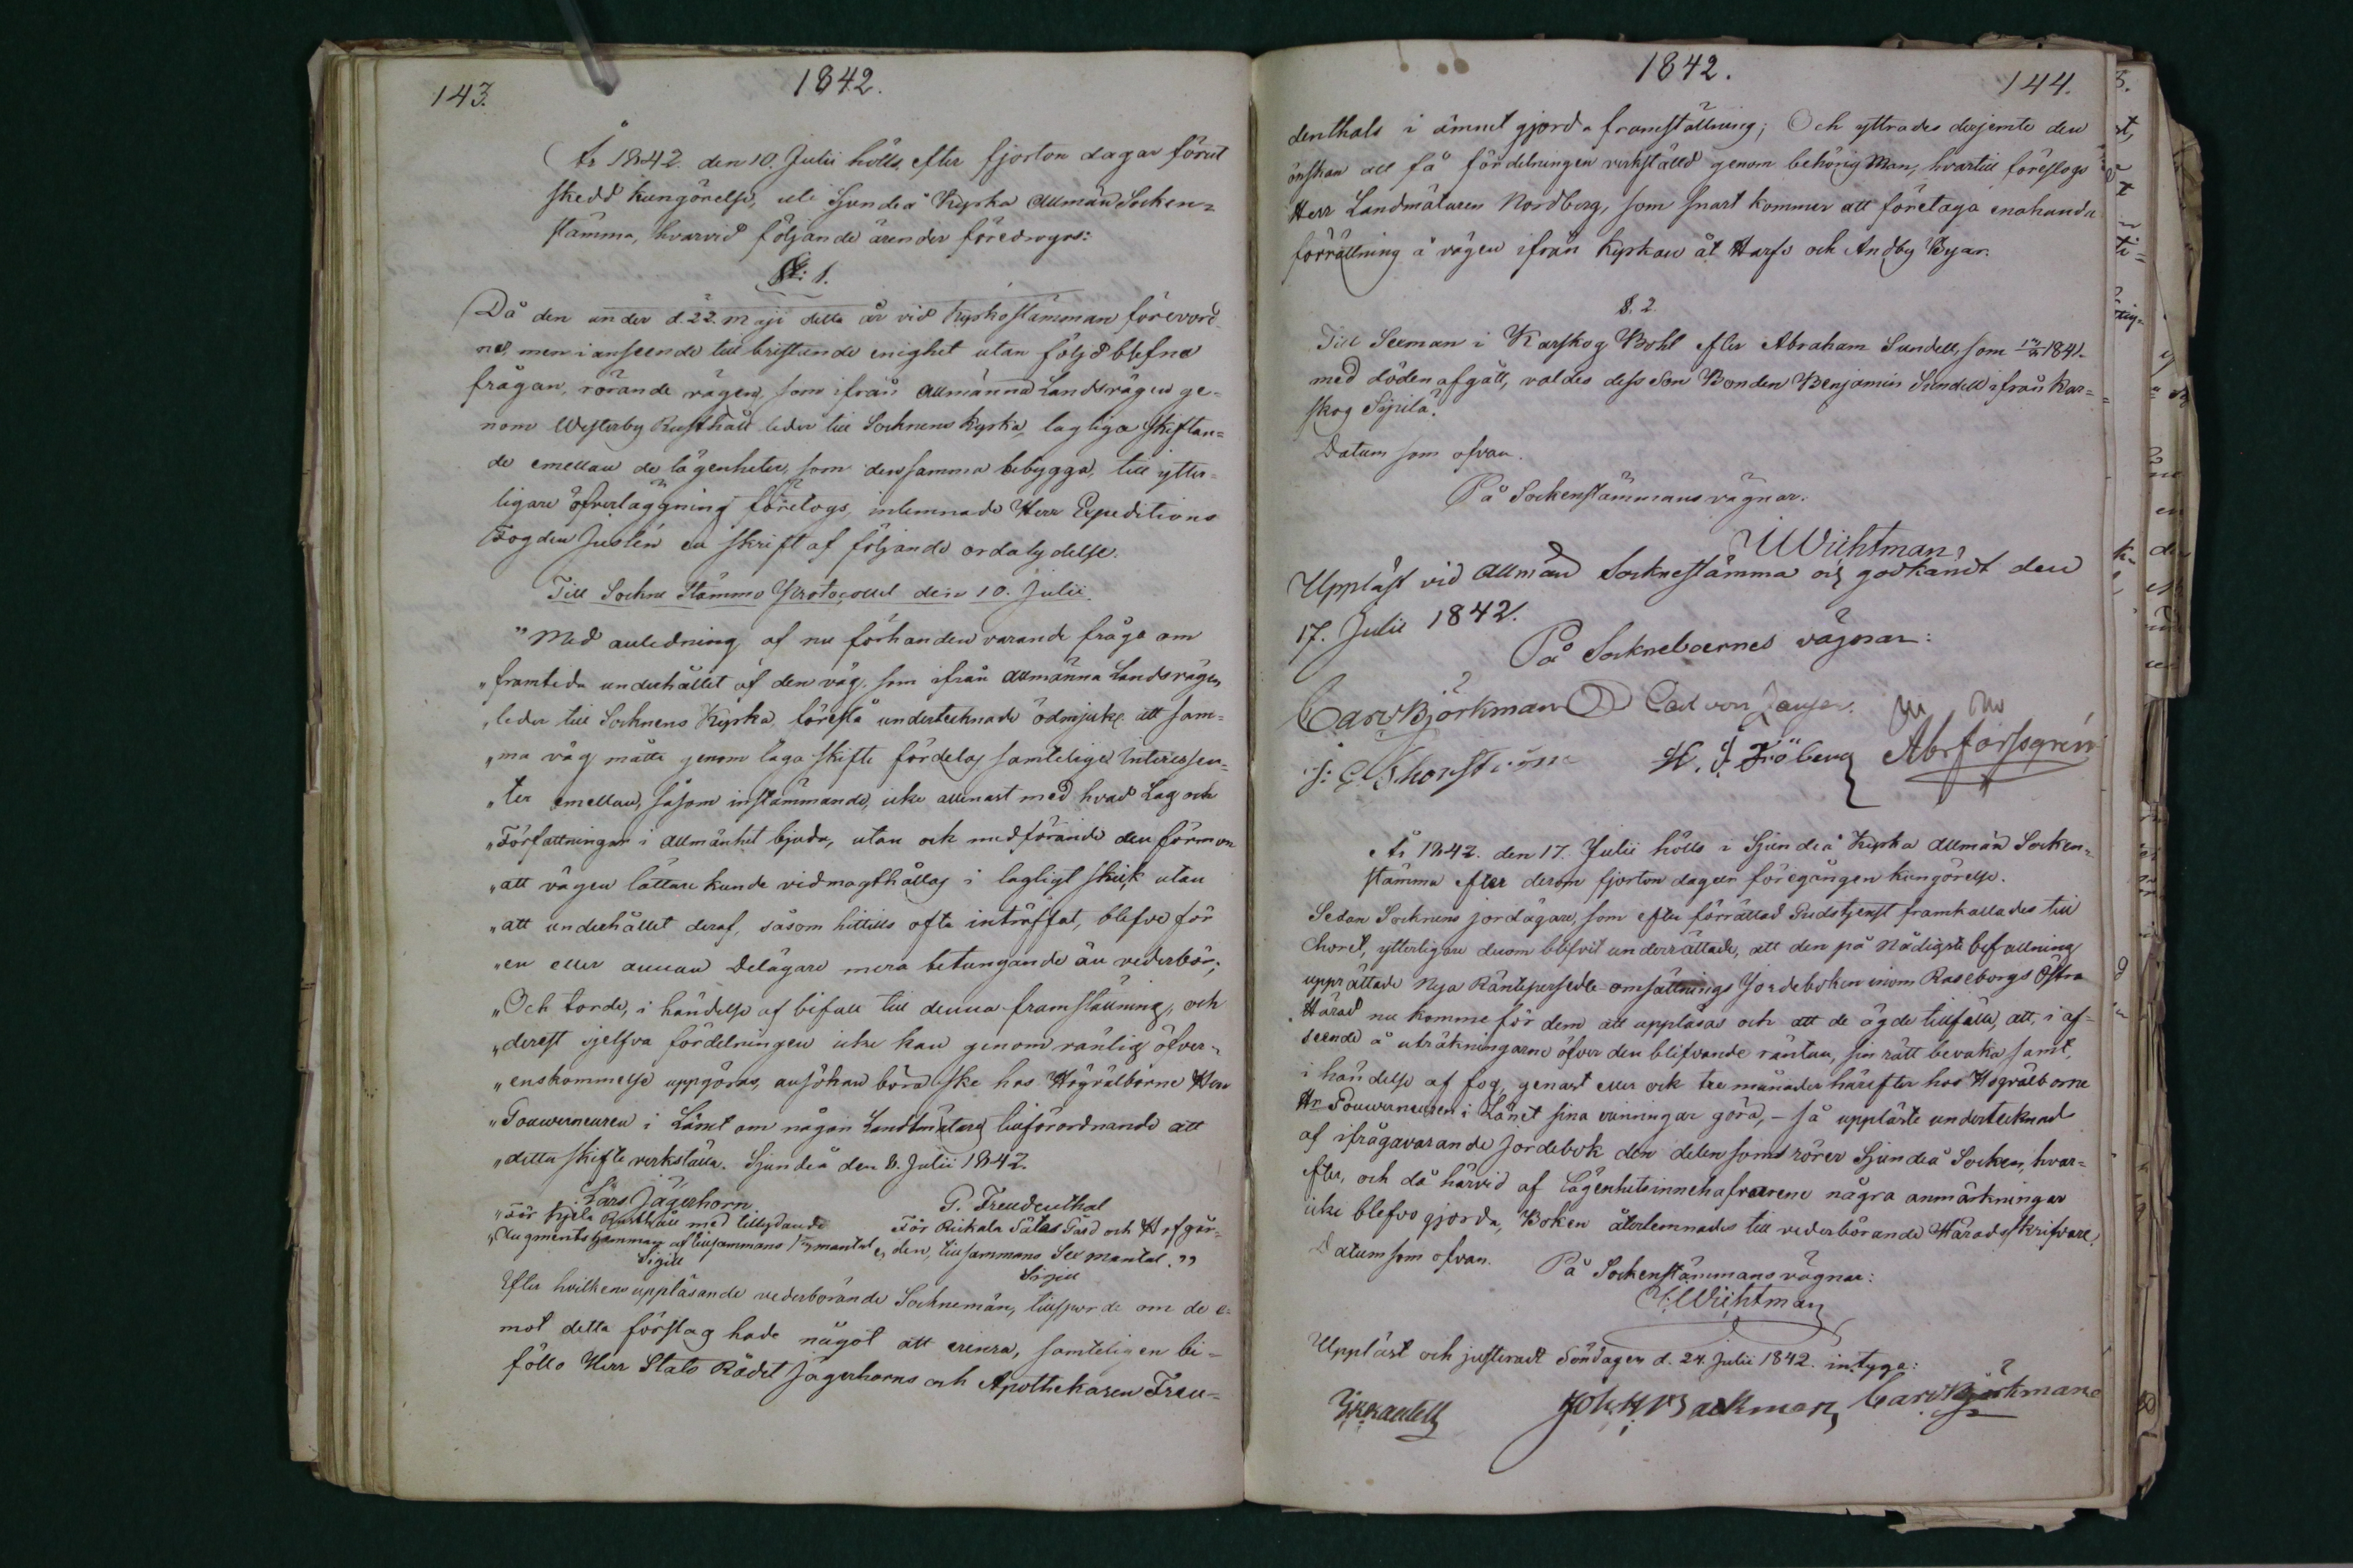 143.
1842.
År 1842. den 10. Julii hölls, efter fjorton dagar förut
skedd kungörelse, uti Sjundeå Kyrka Allmän Socken=
stämma, hvarvid följande ärender föredrogos:
§: 1.
Då den under d. 22. Maji detta år vid Kyrkostämman förevord-
ne, men i anseende till bristande enighet utan följd blefne
frågan, rörande vägen, som ifrån Allmänna Landsvägen ge=
nom Westerby Rusthåll leder till Socknens Kyrka, lagliga skiftan=
de emellan de lägenheter, som densamma bebygga, till ytter=
ligare öfverläggning företogs, inlemnade Herr Expeditions
Fogden Juslén en skrift af följande ordalydelse.
Till Sockne Stämmo Protocollet den 10. Julii.
"Med anledning af nu förhanden varande fråga om
"framtida underhållet af den väg, som ifrån Allmänna Landsvägen
"leder till Socknens Kyrka, föreslå undertecknade ödmjukt att sam=
"ma väg måtte genom laga skifte fördelas samtelige Interessen=
"ter emellan, såsom instämmande, icke allenast med hvad Lag och
"Författningar i Allmänhet bjuda, utan och medförande den förmon
"att vägen lättare kunde vidmagthållas i lagligt skick utan
"att underhållet deraf, såsom hittills ofta inträffat, blefve för
"en eller annan Delägare mera betungande än vederbör;
"Och torde, i händelse af bifall till denna framställning, och
"derest sjelfva fördelningen icke kan genom vänlig öfver=
"enskommelse uppgöras, ansökan böra ske hos Högvälborne Herr
"Gouverneuren i Länet om någon Landtmätares tillförordnande att
"detta skifte verkställa. Sjundeå den 8. Julii 1842.
Lars Jägerhorn
G. Freudenthal
"För Kjela Rusthåll med tillydande
För Rickala Säteri Gård och Hofgår-
"Augments hemman af tillsammans mantal
den, tillsammans Sex mantal."
Sigill
Sigill
Efter hvilkens uppläsande vederbörande Socknemän, tillsporde om de e-
mot detta förslag hade något att erinra, samteligen bi=
föllo Herr Stats Rådet Jägerhorns och Apothekaren Freu=
1842.
144.
denthals i ämnet gjorda framställning; Och yttrades derjemte den
önskan att få fördelningen verkställd genom behörig Man, hvartill föreslogs
Herr Landmätaren Nordberg, som snart kommer att företaga enahanda
förrättning å vägen ifrån Kyrkan åt Harfs och Andby Byar.
§. 2.
Till Sexman i Karskog Bohl efter Abraham Sundell, som 1841.
med döden afgått, valdes dess Son Bonden Benjamin Sundell ifrån Kar=
skog Sipilä.
Datum som ofvan.
På Sockenstämmans vägnar.
Wichtman
Uppläst vid Allmän Socknestämma och godkändt den
17. Julii 1842.
På Sockneboernes vägnar:
Carl Björkman Carl von Jansen.
H. J. Fröberg Abr forssgrén
År 1842. den 17. Julii hölls i Sjundeå Kyrka Allmän Socken=
stämma efter derom fjorton dagar föregången kungörelse.
Sedan Socknens jordägare, som efter förrättad Gudstjenst framkallades till
Choret, ytterligare derom blifvit underrättade, att den på Nådigste befallning
upprättade Nya Räntepersedle-omsättnings Jordeboken inom Raseborgs Östra
Härad nu komme för dem att uppläsas och att de ägde tillfälle, att, i af-
seende å uträkningarne öfver den blifvande räntan, sin rätt bevaka samt,
i händelse af fog, genast eller ock tre månader härefter hos Högvälborne
Hr Gouverneuren i Länet sina erinringar göra, – så uppläste undertecknad
af ifrågavarande jordebok den delen som rörer Sjundeå Socken, hvar=
efter, och då härvid af Lägenhetsinnehafvarene några anmärkningar
icke blefvo gjorda, Boken återlemnades till vederbörande Häradsskrifvare.
Datum som ofvan.
På Sockenstämmans vägnar:
Wichtman
Uppläst och justeradt Söndagen d. 24. Julii 1842. intyga:
Joh: H: Backman, Carl Björkman